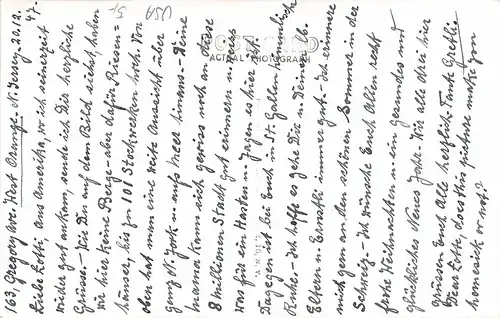 USA
5.-
POST CARD
ACTUAL PHOTOGRAPH
163, Gregory ave. West Orange. N. Jersey. 20.12.
47.
Liebe Lotti, Aus Amerika, wo ich seinerzeit
wieder gut ankam, sende ich Dir herzliche
Grüsse. - Wie Du auf dem Bild siehst, haben
wir hier keine Berge - aber dafür Riesen=
häuser, bis zu 101 Stockwerken hoch. Von
oben hat man eine weite Aussicht über
ganz N. York u. aufs Meer hinaus. - Deine
Mama kann sich gewiss noch an diese
8 millionen Stadt gut erinnern u. weiss
was für ein Hasten u. Jagen es hier ist.
Dagegen ist bei Euch in St. Gallen himmlische
Ruhe. - Ich hoffe es gehe Dir u. Deinen lb.
Eltern u. Ernstli immer gut. - Ich erinnere
mich gern an den schönen Sommer in der
Schweiz. - Ich wünsche Euch Allen recht
frohe Weihnachten u. ein gesundes und
glückliches Neues Jahr. Wir alle drei hier
grüssen Euch Alle herzlich. Tante
Dear Lotte, does this picture make you
homesick or not?